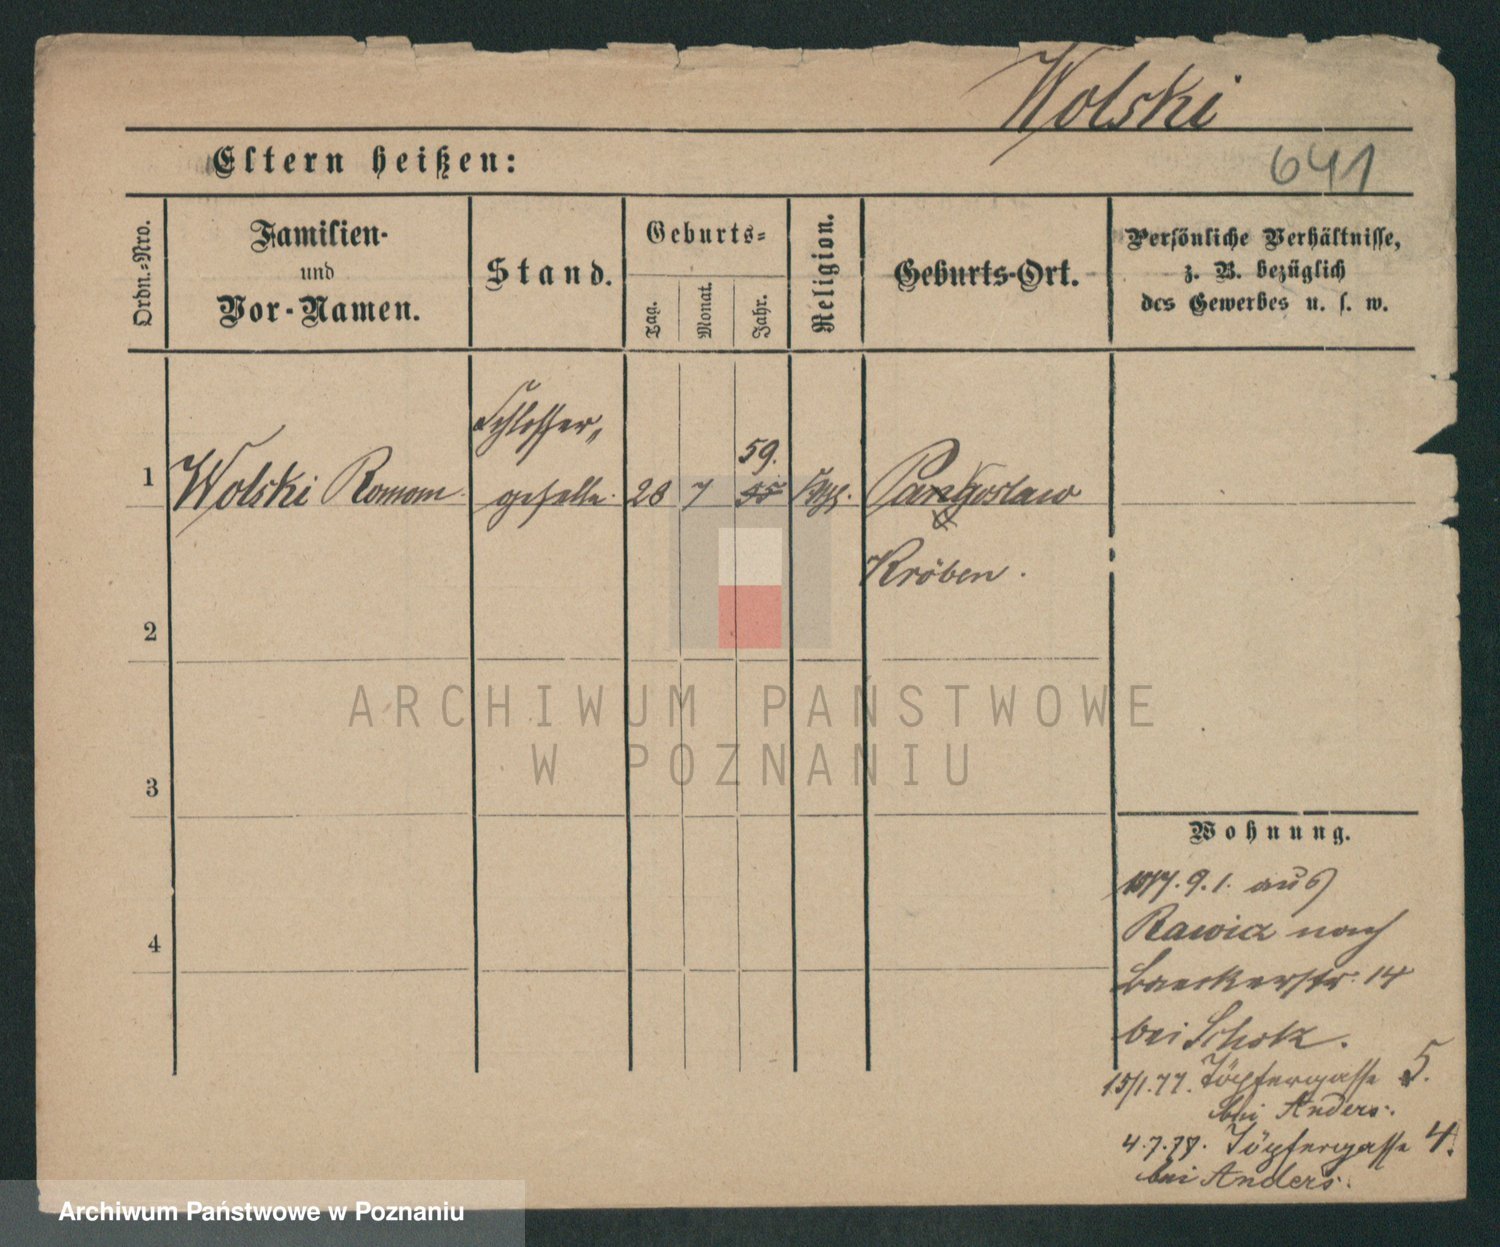 Wolski
Eltern heißen:
641
Ordn.-Nro.
Familien-
und
Vor-Namen.
Stand.
Geburts-
Tag.
Monat.
Jahr.
Religion.
Geburts-Ort.
Persönliche Verhältnisse,
z. B. bezüglich
des Gewerbes u. s. w.
1
Wolski Roman
Schlosser-
geselle
28
7
59.
55
Kath.
Pangoslaw
Kröben.
2
3
4
ARCHIWUM PAŃSTWOWE
W POZNANIU
Wohnung.
1877. 9. 1. aus
Rawicz nach
Baeckerstr. 14
bei Scholz.
15/1.77. Töpfergasse 5.
bei Anders.
4.7.78. Töpfergasse 4.
bei Anders.
Archiwum Państwowe w Poznaniu